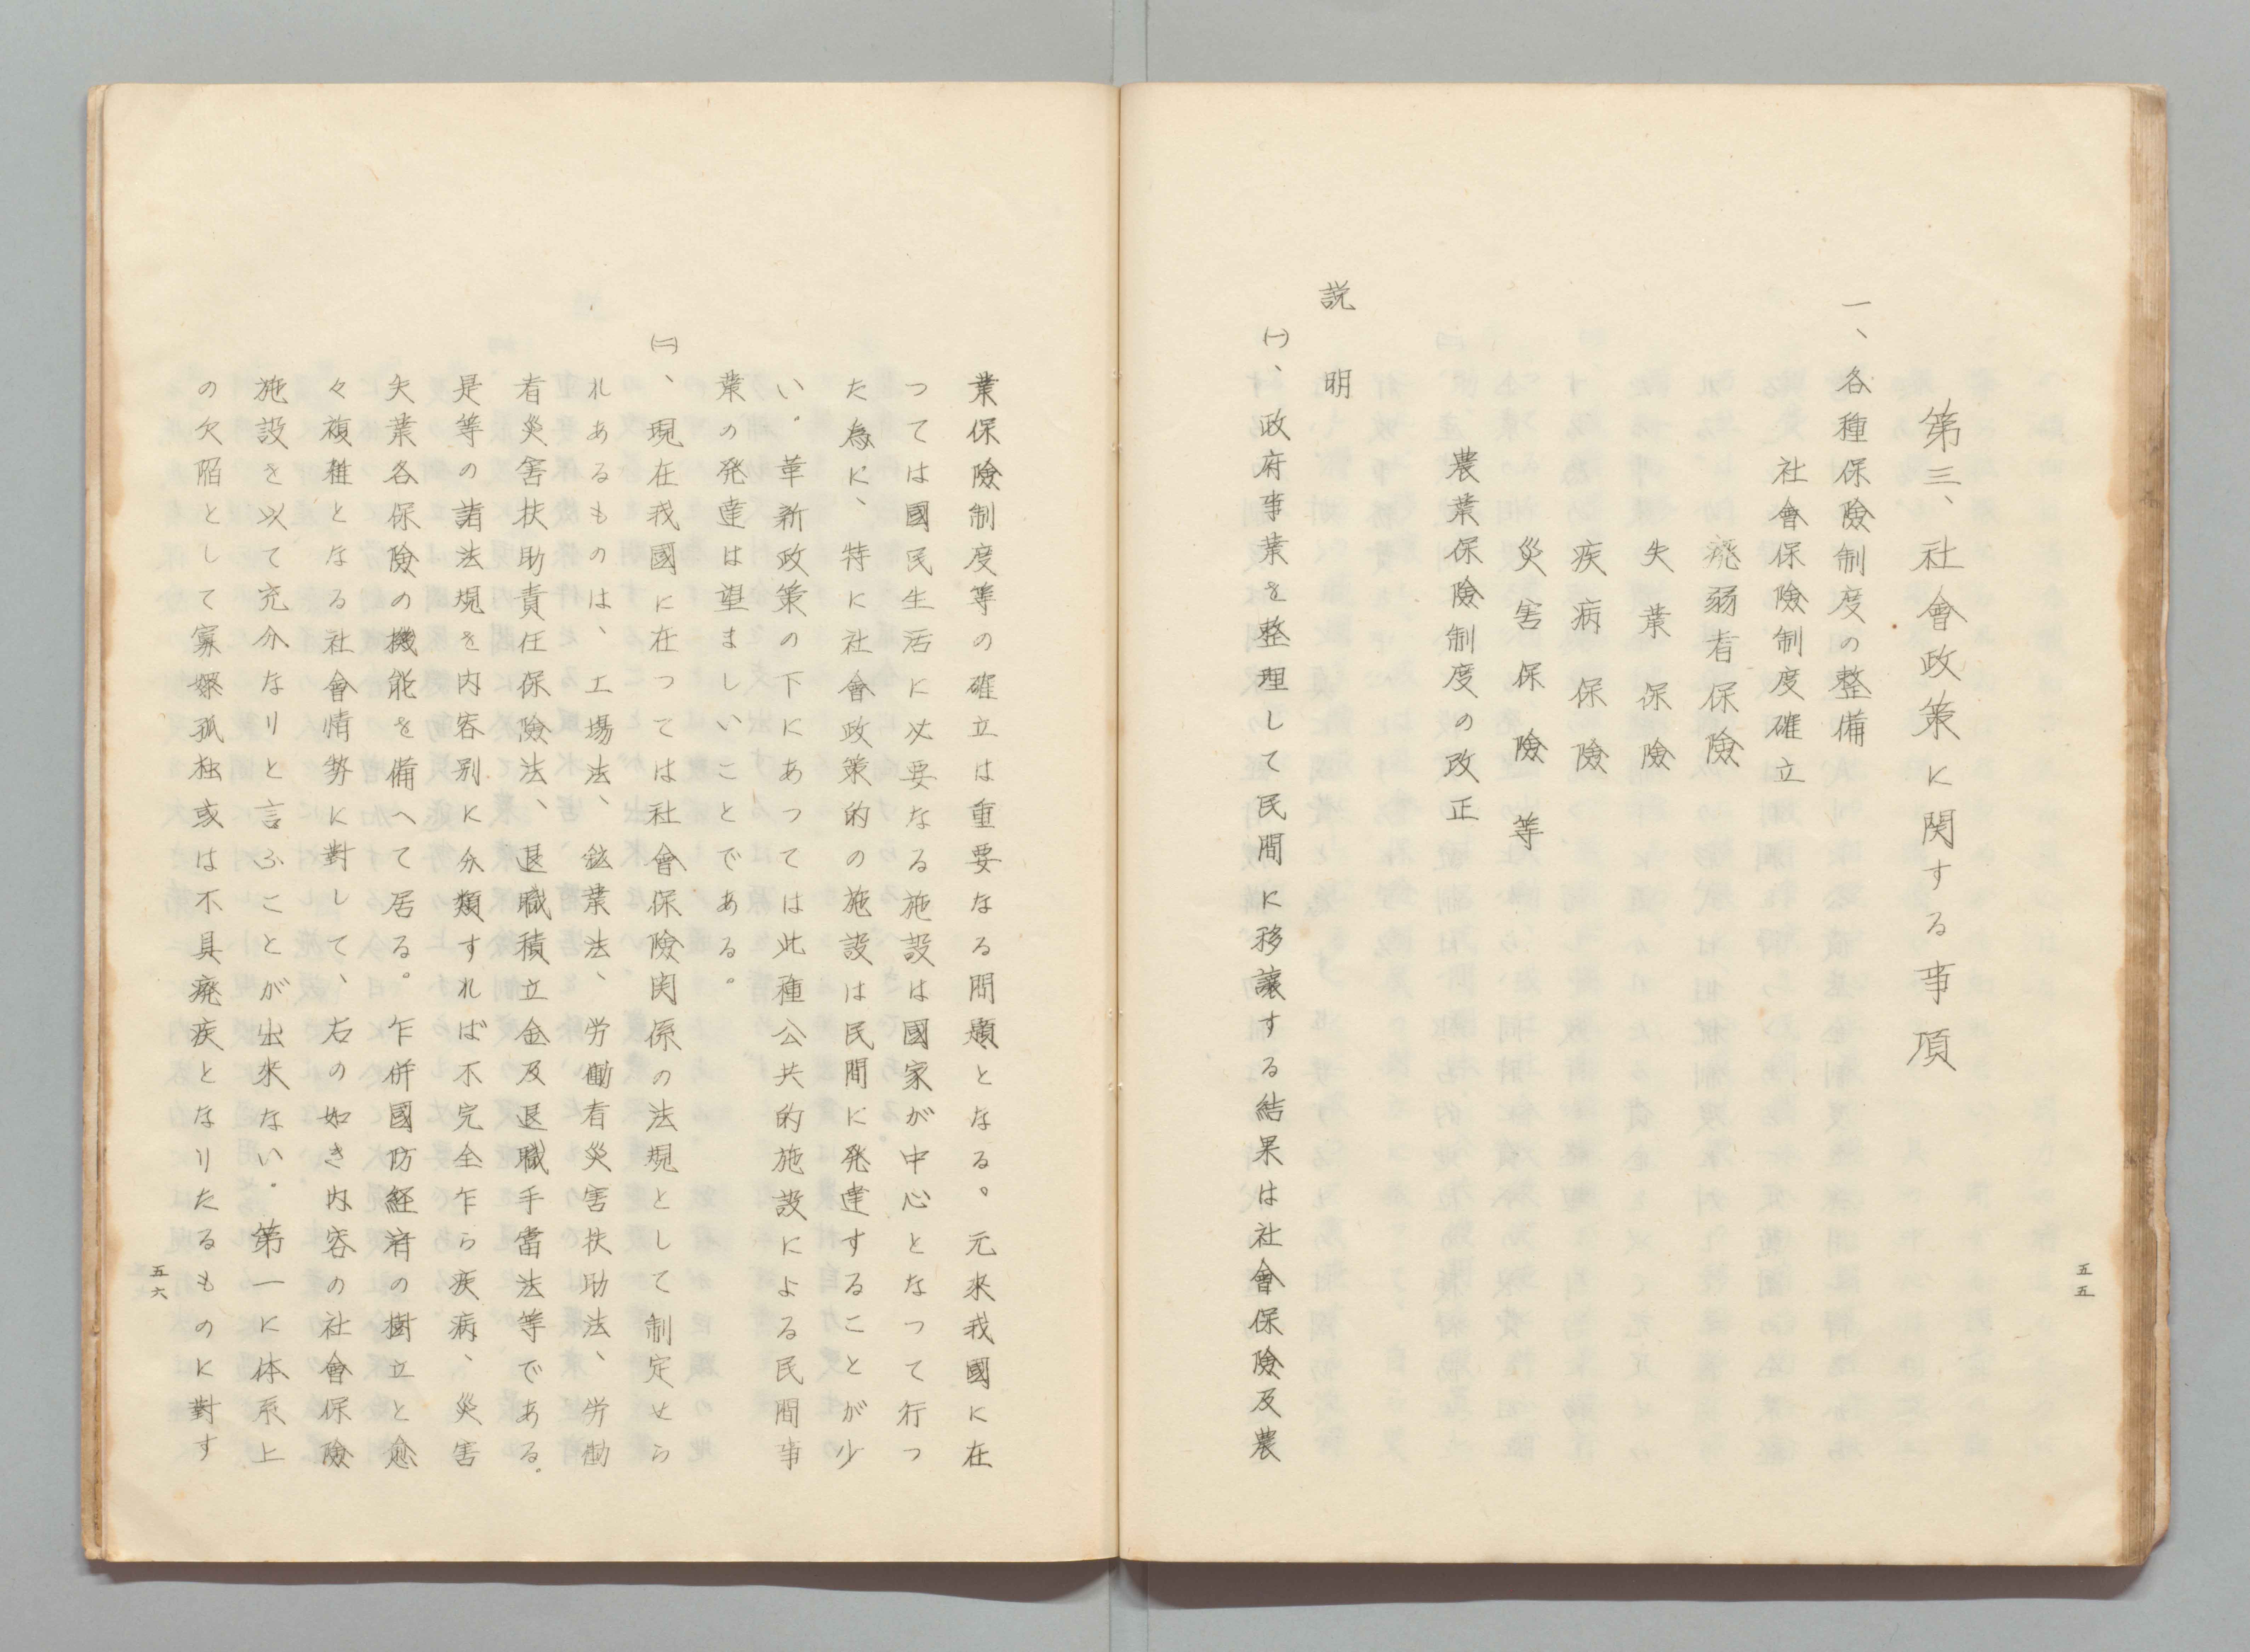 第三、社會政策に関する事項
一、各種保險制度の整備
社會保險制度確立
癈弱者保險
失業保險
疾病保險
災害保險等
農業保險制度の改正
説明
㈠、政府事業を整理して民間に移讓する結果は社會保險及農
五五
業保險制度等の確立は重要なる問題となる。元来我國に在
つては國民生活に必要なる施設は國家が中心となつて行つ
た為に、特に社會政策的の施設は民間に発達することが少
い。革新政策の下にあつては此種公共的施設による民間事
業の発達は望ましいことである。
㈡、現在我國に在つては社會保險関係の法規として制定せら
れあるものは、工場法、鉱業法、労働者災害扶助法、労働
者災害扶助責任保險法、退職積立金及退職手當法等である。
是等の諸法規を内容別に分類すれば不完全乍ら疾病、災害
失業各保險の機能を備へて居る。乍併國防経済の樹立と愈
々複雑となる社會情勢に對して、右の如き内容の社會保險
施設を以て充分なりと言ふことが出来ない。第一に体系上
の欠陥として寡孀孤独或は不具癈疾となりたるものに對す
五六